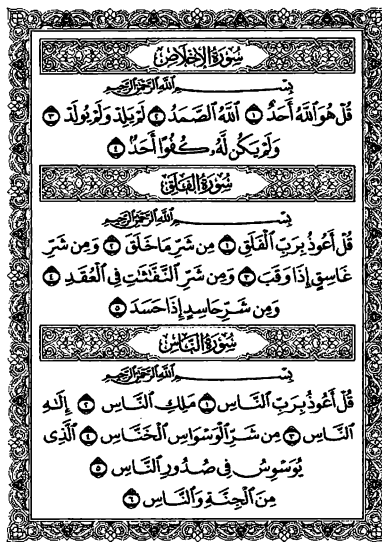 سُورَةُ الإِخْلَاصِ
بِسْمِ اللَّهِ الرَّحْمَٰنِ الرَّحِيمِ
قُلْ هُوَ ٱللَّهُ أَحَدٌ ١ ٱللَّهُ ٱلصَّمَدُ ٢ لَمْ يَلِدْ وَلَمْ يُولَدْ ٣
وَلَمْ يَكُن لَّهُۥ كُفُوًا أَحَدٌۢ ٤
سُورَةُ الْفَلَقِ
بِسْمِ اللَّهِ الرَّحْمَٰنِ الرَّحِيمِ
قُلْ أَعُوذُ بِرَبِّ ٱلْفَلَقِ ١ مِن شَرِّ مَا خَلَقَ ٢ وَمِن شَرِّ
غَاسِقٍ إِذَا وَقَبَ ٣ وَمِن شَرِّ ٱلنَّفَّٰثَٰتِ فِى ٱلْعُقَدِ ٤
وَمِن شَرِّ حَاسِدٍ إِذَا حَسَدَ ٥
سُورَةُ النَّاسِ
بِسْمِ اللَّهِ الرَّحْمَٰنِ الرَّحِيمِ
قُلْ أَعُوذُ بِرَبِّ ٱلنَّاسِ ١ مَلِكِ ٱلنَّاسِ ٢ إِلَٰهِ
ٱلنَّاسِ ٣ مِن شَرِّ ٱلْوَسْوَاسِ ٱلْخَنَّاسِ ٤ ٱلَّذِى
يُوَسْوِسُ فِى صُدُورِ ٱلنَّاسِ ٥
مِنَ ٱلْجِنَّةِ وَٱلنَّاسِ ٦